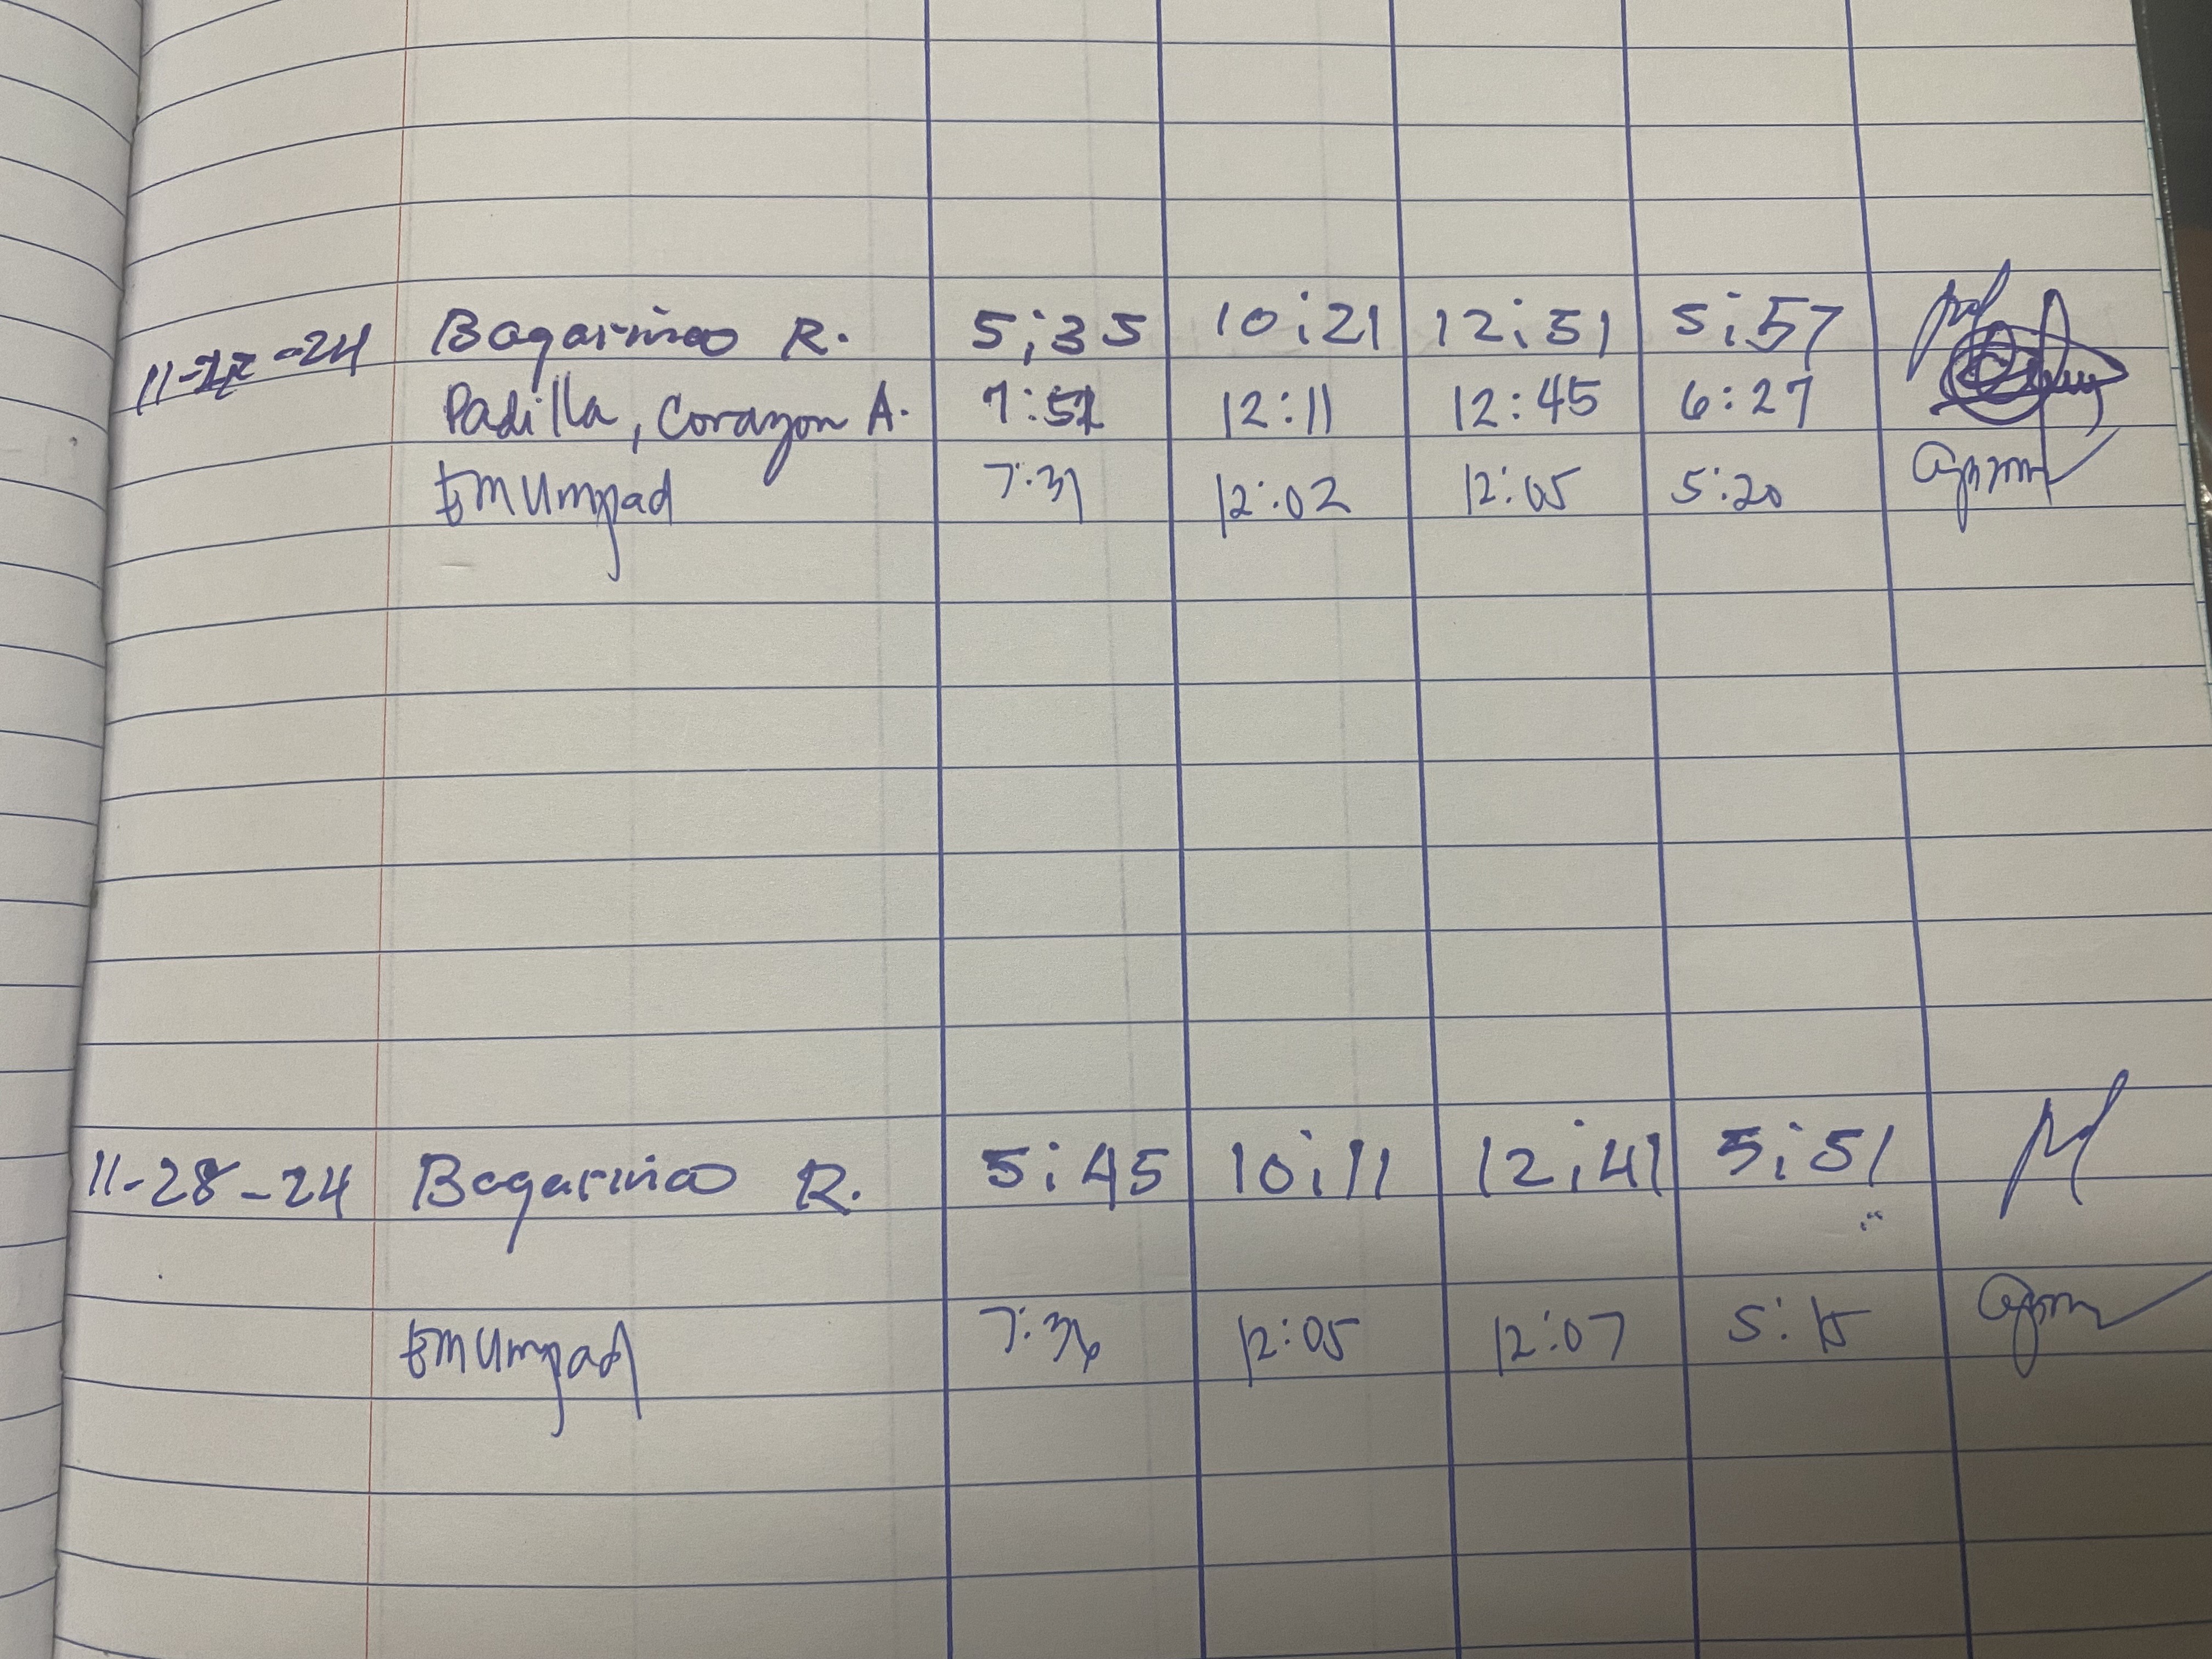 11-27-24 Bagarinao R. 5:35 10:21 12:51 5:57
Padilla, Corazon A. 7:52 12:11 12:45 6:27
EMUmpad 7:31 12:02 12:05 5:20
11-28-24 Bagarinao R. 5:45 10:11 12:41 5:51
EMUmpad 7:36 12:05 12:07 5:15